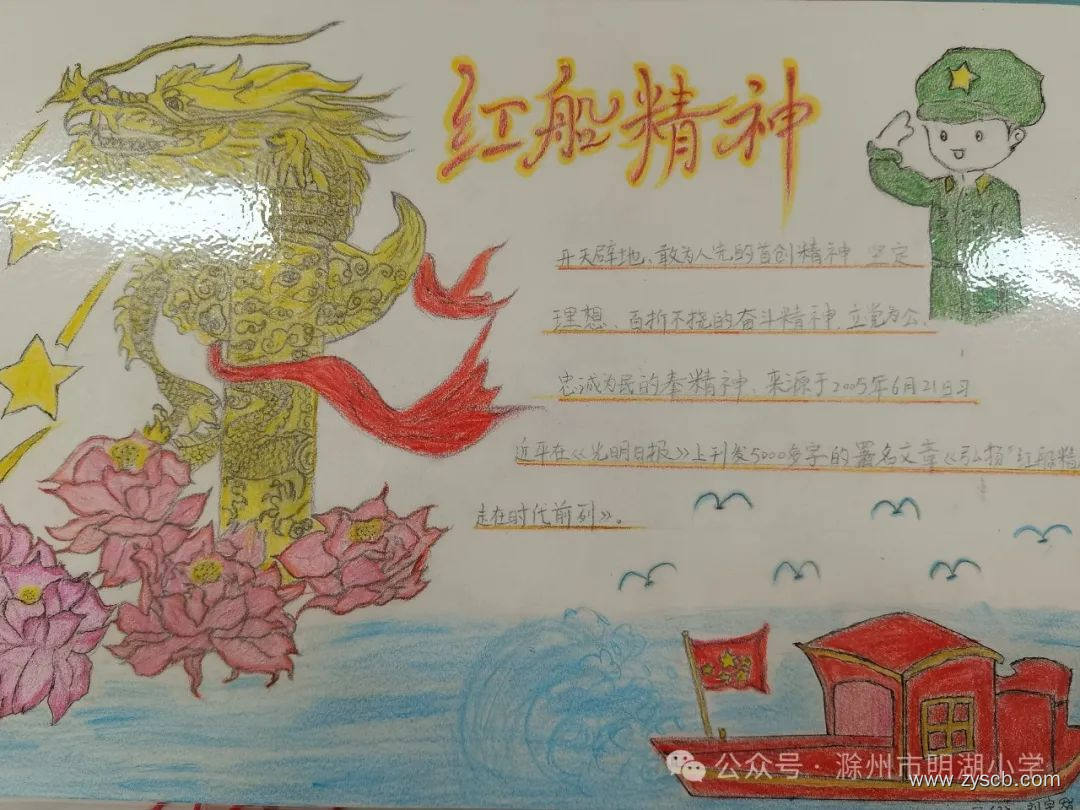 红船精神
开天辟地、敢为人先的首创精神 坚定
理想、百折不挠的奋斗精神,立党为公、
忠诚为民的奉精神、来源于2005年6月21日习
近平在《光明日报》上刊发5000多字的署名文章《弘扬“红船精
走在时代前列》。
公众号·滁州市明湖小学
www.zyscb.com